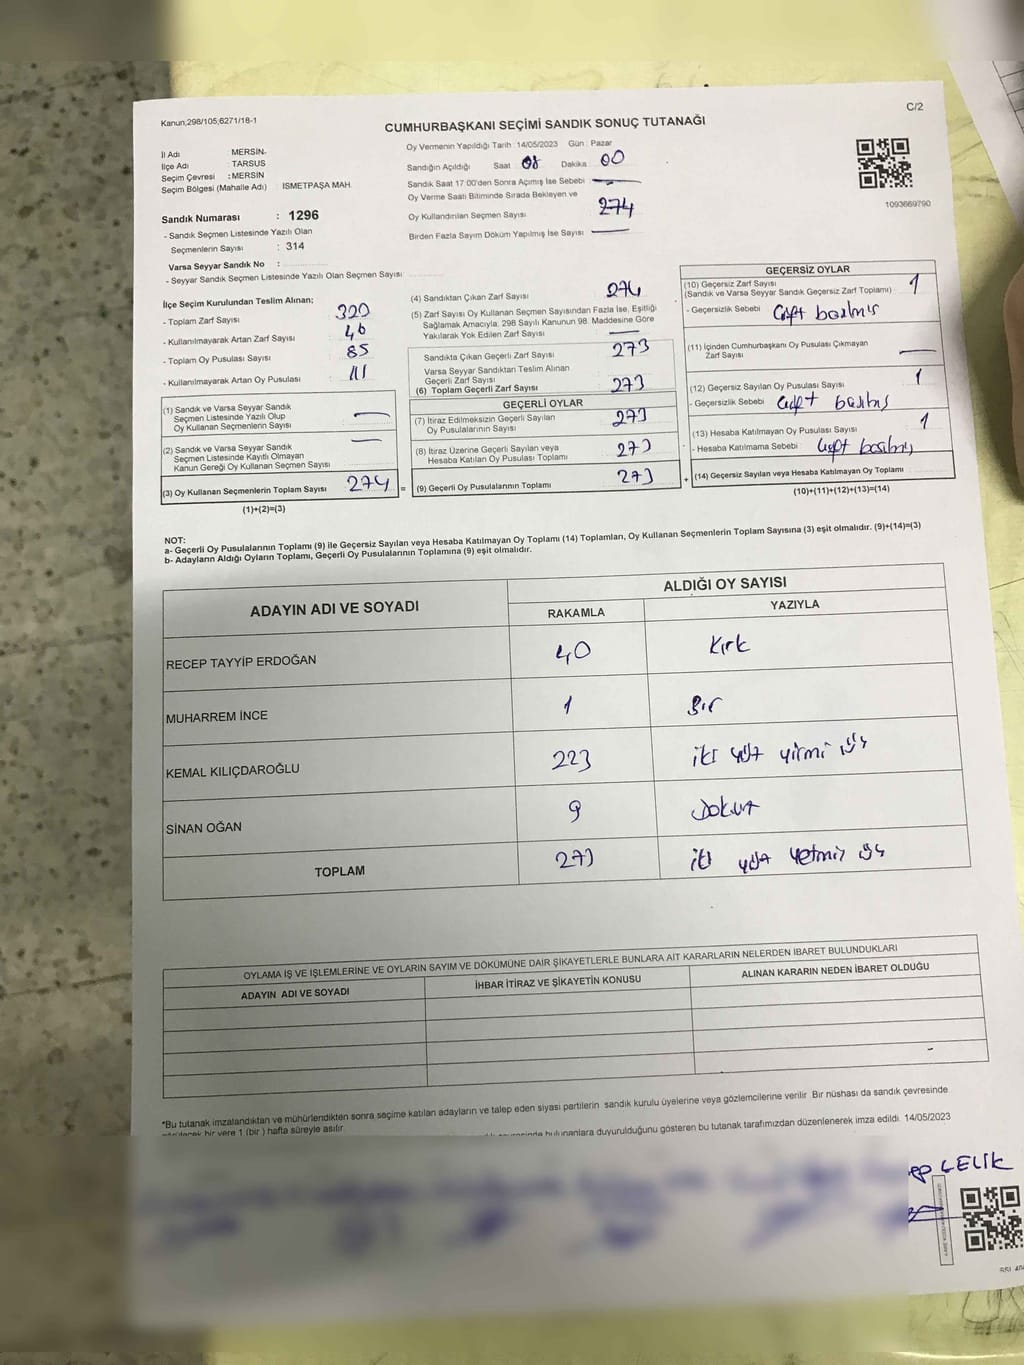 Kanun,298/105;6271/18-1
C/2
CUMHURBAŞKANI SEÇİMİ SANDIK SONUÇ TUTANAĞI
İl Adı : MERSİN
İlçe Adı : TARSUS
Seçim Çevresi : MERSİN
Seçim Bölgesi (Mahalle Adı) : ISMETPAŞA MAH.
Oy Vermenin Yapıldığı Tarih : 14/05/2023 Gün : Pazar
Sandığın Açıldığı Saat 08 Dakika 00
Sandık Saat 17:00'den Sonra Açımış İse Sebebi
Oy Verme Saati Bitiminde Sırada Bekleyen ve
Oy Kullandırılan Seçmen Sayısı 274
Birden Fazla Sayım Döküm Yapılmış İse Sayısı
1093669790
Sandık Numarası : 1296
- Sandık Seçmen Listesinde Yazılı Olan
Seçmenlerin Sayısı : 314
Varsa Seyyar Sandık No :
- Seyyar Sandık Seçmen Listesinde Yazılı Olan Seçmen Sayısı
İlçe Seçim Kurulundan Teslim Alınan;
- Toplam Zarf Sayısı 320
- Kullanılmayarak Artan Zarf Sayısı 46
- Toplam Oy Pusulası Sayısı 85
- Kullanılmayarak Artan Oy Pusulası 111
(1) Sandık ve Varsa Seyyar Sandık
Seçmen Listesinde Yazılı Olup
Oy Kullanan Seçmenlerin Sayısı
(2) Sandık ve Varsa Seyyar Sandık
Seçmen Listesinde Kayıtlı Olmayan
Kanun Gereği Oy Kullanan Seçmen Sayısı
(3) Oy Kullanan Seçmenlerin Toplam Sayısı 274 =
(1)+(2)=(3)
(4) Sandıktan Çıkan Zarf Sayısı 274
(5) Zarf Sayısı Oy Kullanan Seçmen Sayısından Fazla İse, Eşitliği
Sağlamak Amacıyla; 298 Sayılı Kanunun 98. Maddesine Göre
Yakılarak Yok Edilen Zarf Sayısı
Sandıkta Çıkan Geçerli Zarf Sayısı 273
Varsa Seyyar Sandıktan Teslim Alınan
Geçerli Zarf Sayısı
(6) Toplam Geçerli Zarf Sayısı 273
GEÇERLİ OYLAR
(7) İtiraz Edilmeksizin Geçerli Sayılan
Oy Pusulalarının Sayısı 273
(8) İtiraz Üzerine Geçerli Sayılan veya
Hesaba Katılan Oy Pusulası Toplamı 273
(9) Geçerli Oy Pusulalarının Toplamı 273 +
GEÇERSİZ OYLAR
(10) Geçersiz Zarf Sayısı
(Sandık ve Varsa Seyyar Sandık Geçersiz Zarf Toplamı) 1
- Geçersizlik Sebebi Çift basılmış
(11) İçinden Cumhurbaşkanı Oy Pusulası Çıkmayan
Zarf Sayısı
(12) Geçersiz Sayılan Oy Pusulası Sayısı 1
- Geçersizlik Sebebi Çift basılmış
(13) Hesaba Katılmayan Oy Pusulası Sayısı 1
- Hesaba Katılmama Sebebi Çift basılmış
(14) Geçersiz Sayılan veya Hesaba Katılmayan Oy Toplamı
(10)+(11)+(12)+(13)=(14)
NOT:
a- Geçerli Oy Pusulalarının Toplamı (9) ile Geçersiz Sayılan veya Hesaba Katılmayan Oy Toplamı (14) Toplamları, Oy Kullanan Seçmenlerin Toplam Sayısına (3) eşit olmalıdır. (9)+(14)=(3)
b- Adayların Aldığı Oyların Toplamı, Geçerli Oy Pusulalarının Toplamına (9) eşit olmalıdır.
ADAYIN ADI VE SOYADI
ALDIĞI OY SAYISI
RAKAMLA YAZIYLA
RECEP TAYYİP ERDOĞAN 40 Kırk
MUHARREM İNCE 1 Bir
KEMAL KILIÇDAROĞLU 223 iki yüz yirmi üç
SİNAN OĞAN 9 Dokuz
TOPLAM 273 iki yüz yetmiş üç
OYLAMA İŞ VE İŞLEMLERİNE VE OYLARIN SAYIM VE DÖKÜMÜNE DAİR ŞİKAYETLERLE BUNLARA AİT KARARLARIN NELERDEN İBARET BULUNDUKLARI
ADAYIN ADI VE SOYADI İHBAR İTİRAZ VE ŞİKAYETİN KONUSU ALINAN KARARIN NEDEN İBARET OLDUĞU
*Bu tutanak imzalandıktan ve mühürlendikten sonra seçime katılan adayların ve talep eden siyasi partilerin sandık kurulu üyelerine veya gözlemcilerine verilir. Bir nüshası da sandık çevresinde
bir yere 1 (bir) hafta süreyle asılır.
bulunanlara duyurulduğunu gösteren bu tutanak tarafımızdan düzenlenerek imza edildi. 14/05/2023
ÇELİK